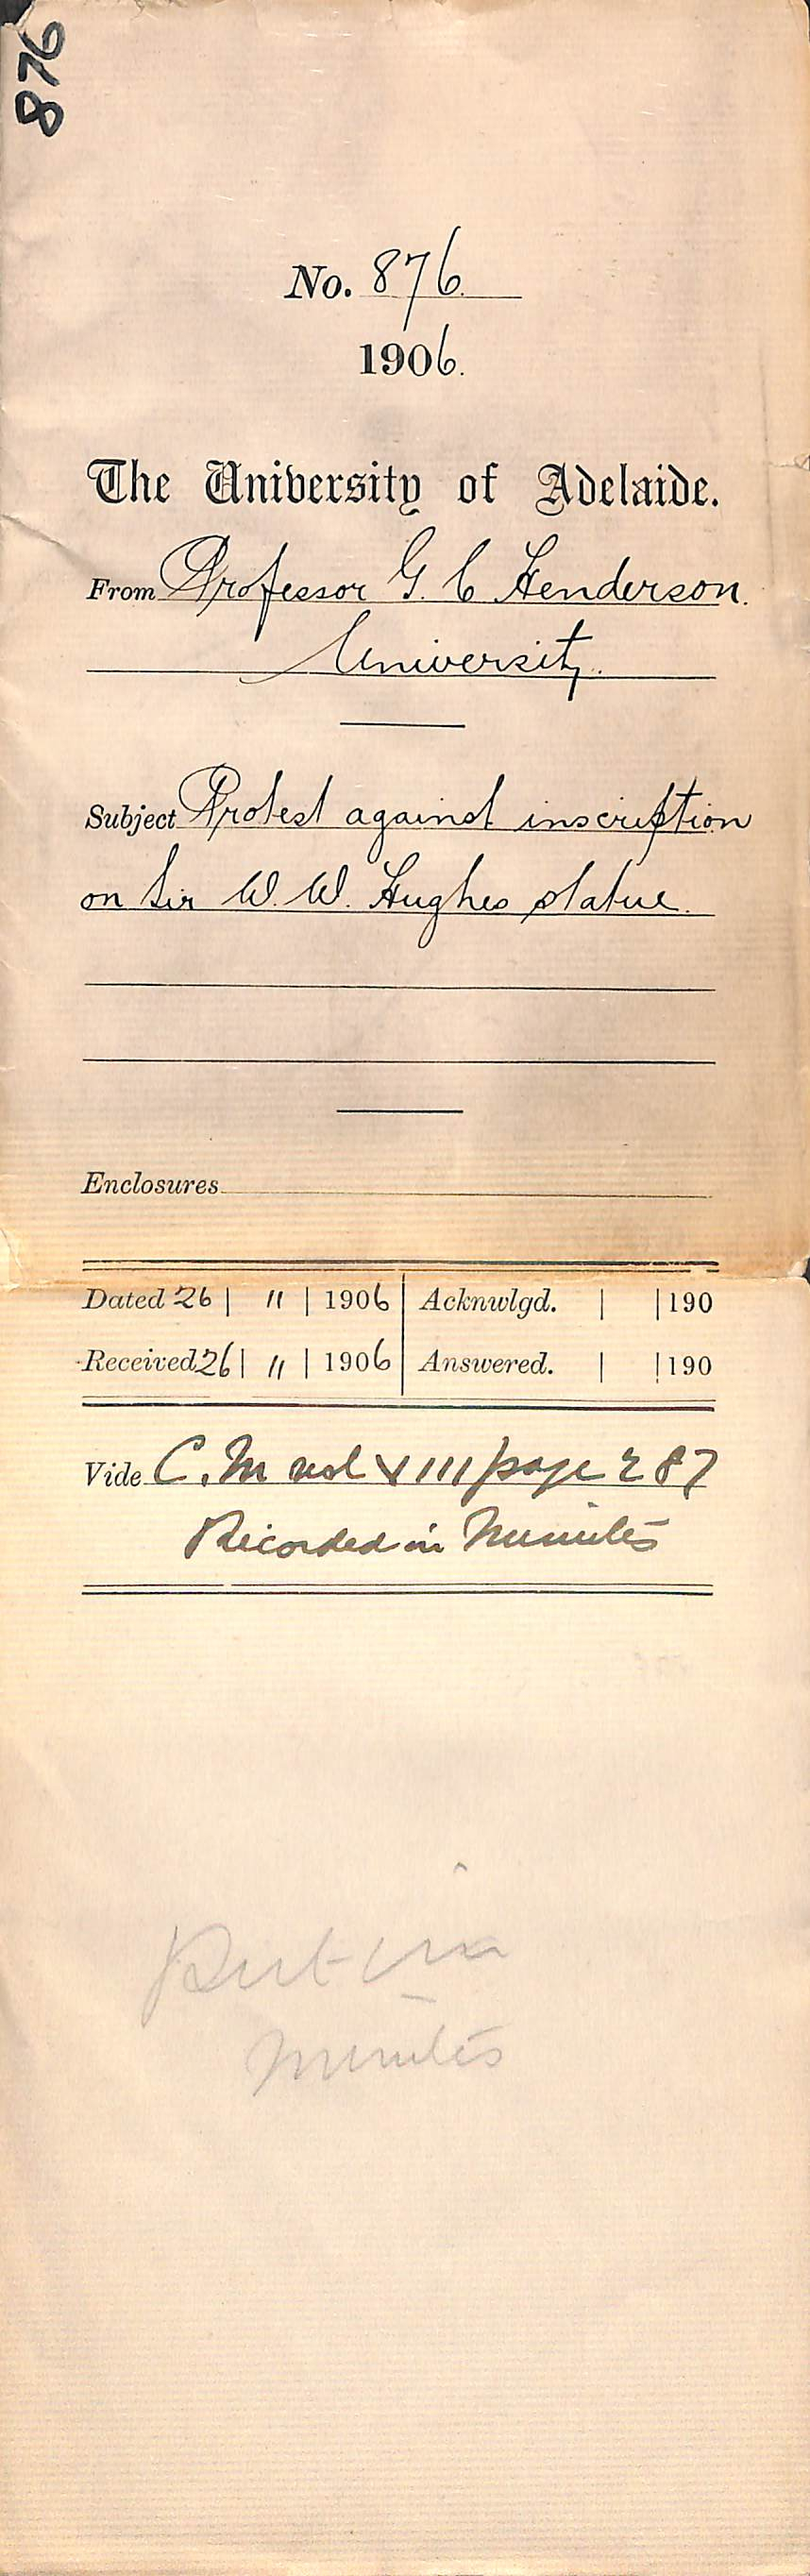 876
No. 876
1906.
The University of Adelaide.
From Professor G. C Henderson.
University.
Subject Protest against inscription
on Sir W. W. Hughes statue.
Enclosures
Dated 26 | 11 | 1906 | Acknwlgd. | | 190
Received 26 | 11 | 1906 | Answered. | | 190
Vide C. M vol VIII page 287
Recorded in Minutes
Put in
Minutes